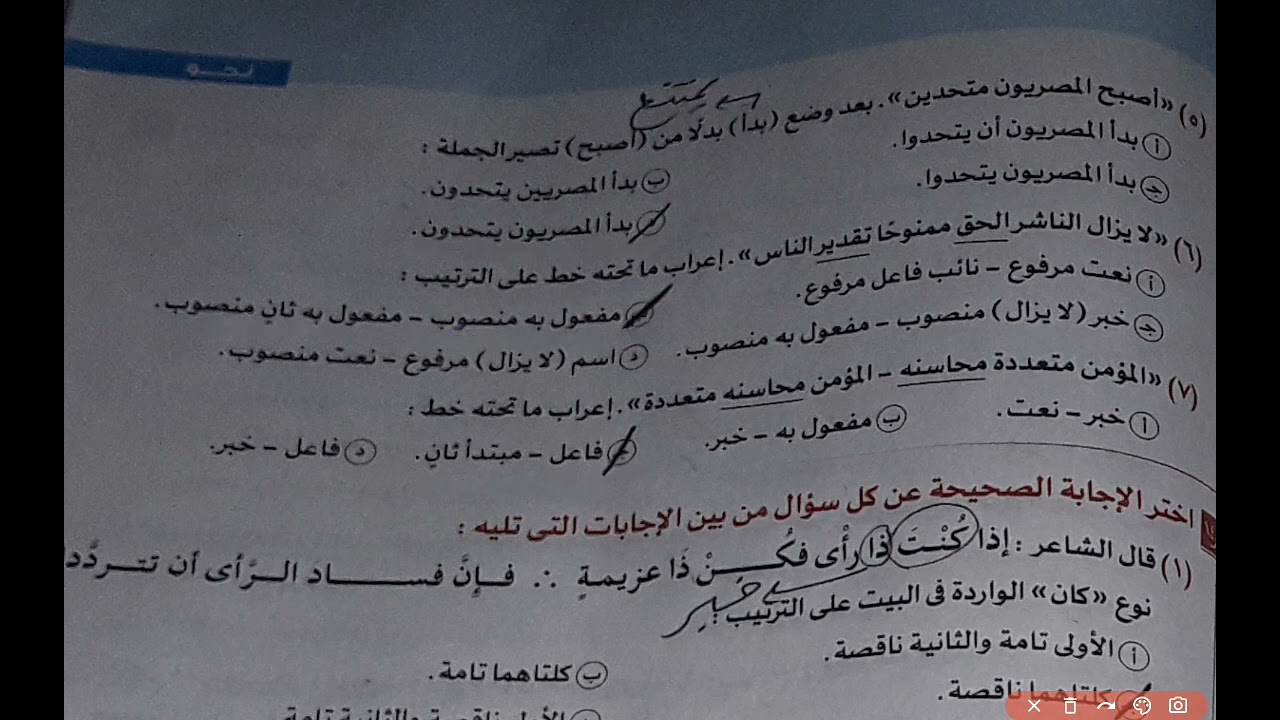 نحو
(٥) «أصبح المصريون متحدين». بعد وضع (بدأ) بدلًا من (أصبح) تصير الجملة :
أ بدأ المصريون أن يتحدوا.
ب بدأ المصريين يتحدون.
جـ بدأ المصريون يتحدوا.
بدأ المصريون يتحدون.
(٦) «لا يزال الناشر الحق ممنوحًا تقدير الناس». إعراب ما تحته خط على الترتيب :
أ نعت مرفوع – نائب فاعل مرفوع.
مفعول به منصوب – مفعول به ثانٍ منصوب.
جـ خبر (لا يزال) منصوب – مفعول به منصوب.
د اسم (لا يزال) مرفوع – نعت منصوب.
(٧) «المؤمن متعددة محاسنه – المؤمن محاسنه متعددة». إعراب ما تحته خط :
أ خبر – نعت.
ب مفعول به – خبر.
جـ فاعل – مبتدأ ثانٍ.
د فاعل – خبر.
اختر الإجابة الصحيحة عن كل سؤال من بين الإجابات التى تليه :
(١) قال الشاعر : إذا كُنْتَ ذا رأْى فكُنْ ذَا عزيمةٍ ∴ فإنَّ فساد الرَّأى أن تتردَّدا
نوع «كان» الواردة فى البيت على الترتيب :
خبر
أ الأولى تامة والثانية ناقصة.
ب كلتاهما تامة.
كلتاهما ناقصة.
الأولى ناقصة والثانية تامة.